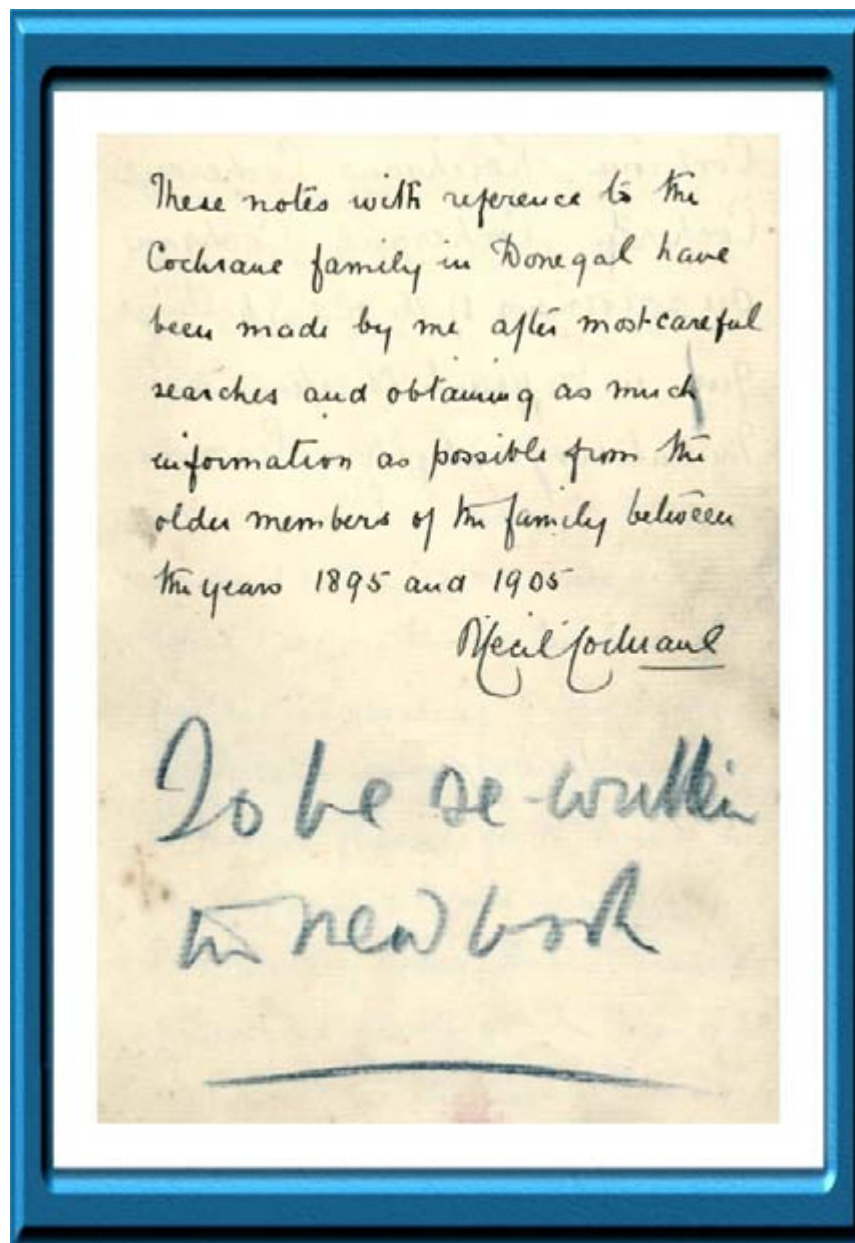 These notes with reference to the
Cochrane family in Donegal have
been made by me after most careful
searches and obtaining as much
information as possible from the
older members of the family between
the years 1895 and 1905
Cecil Cochrane
To be re-written
in new book